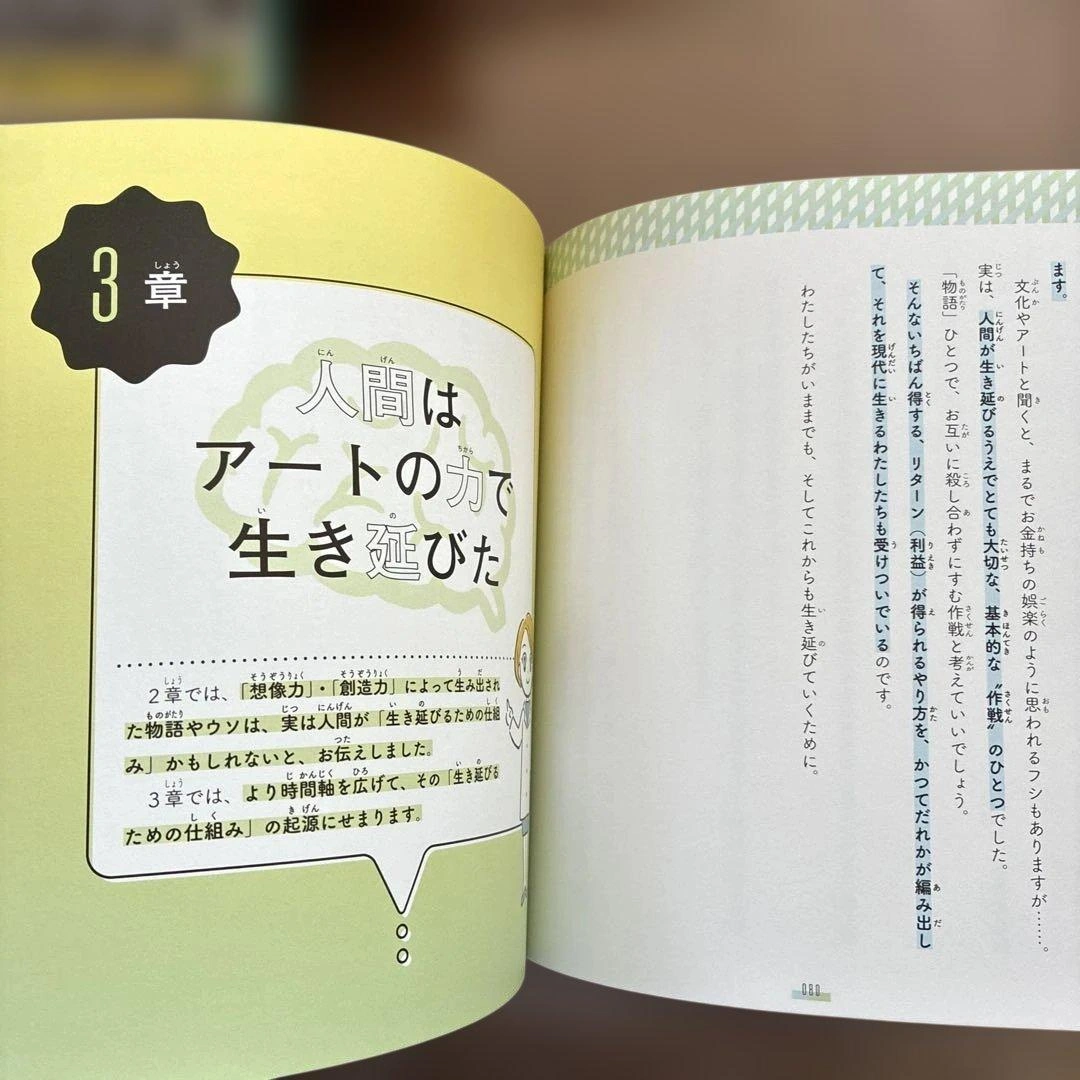 ます。
文化やアートと聞くと、まるでお金持ちの娯楽のように思われるフシもありますが……。
実は、人間が生き延びるうえでとても大切な、基本的な〝作戦〟のひとつでした。
「物語」ひとつで、お互いに殺し合わずにすむ作戦と考えていいでしょう。
そんないちばん得する、リターン（利益）が得られるやり方を、かつてだれかが編み出し
て、それを現代に生きるわたしたちも受けついでいるのです。
わたしたちがいままでも、そしてこれからも生き延びていくために。
3章
人間は
アートの力で
生き延びた
2章では、「想像力」・「創造力」によって生み出され
た物語やウソは、実は人間が「生き延びるための仕組
み」かもしれないと、お伝えしました。
3章では、より時間軸を広げて、その「生き延びる
ための仕組み」の起源にせまります。